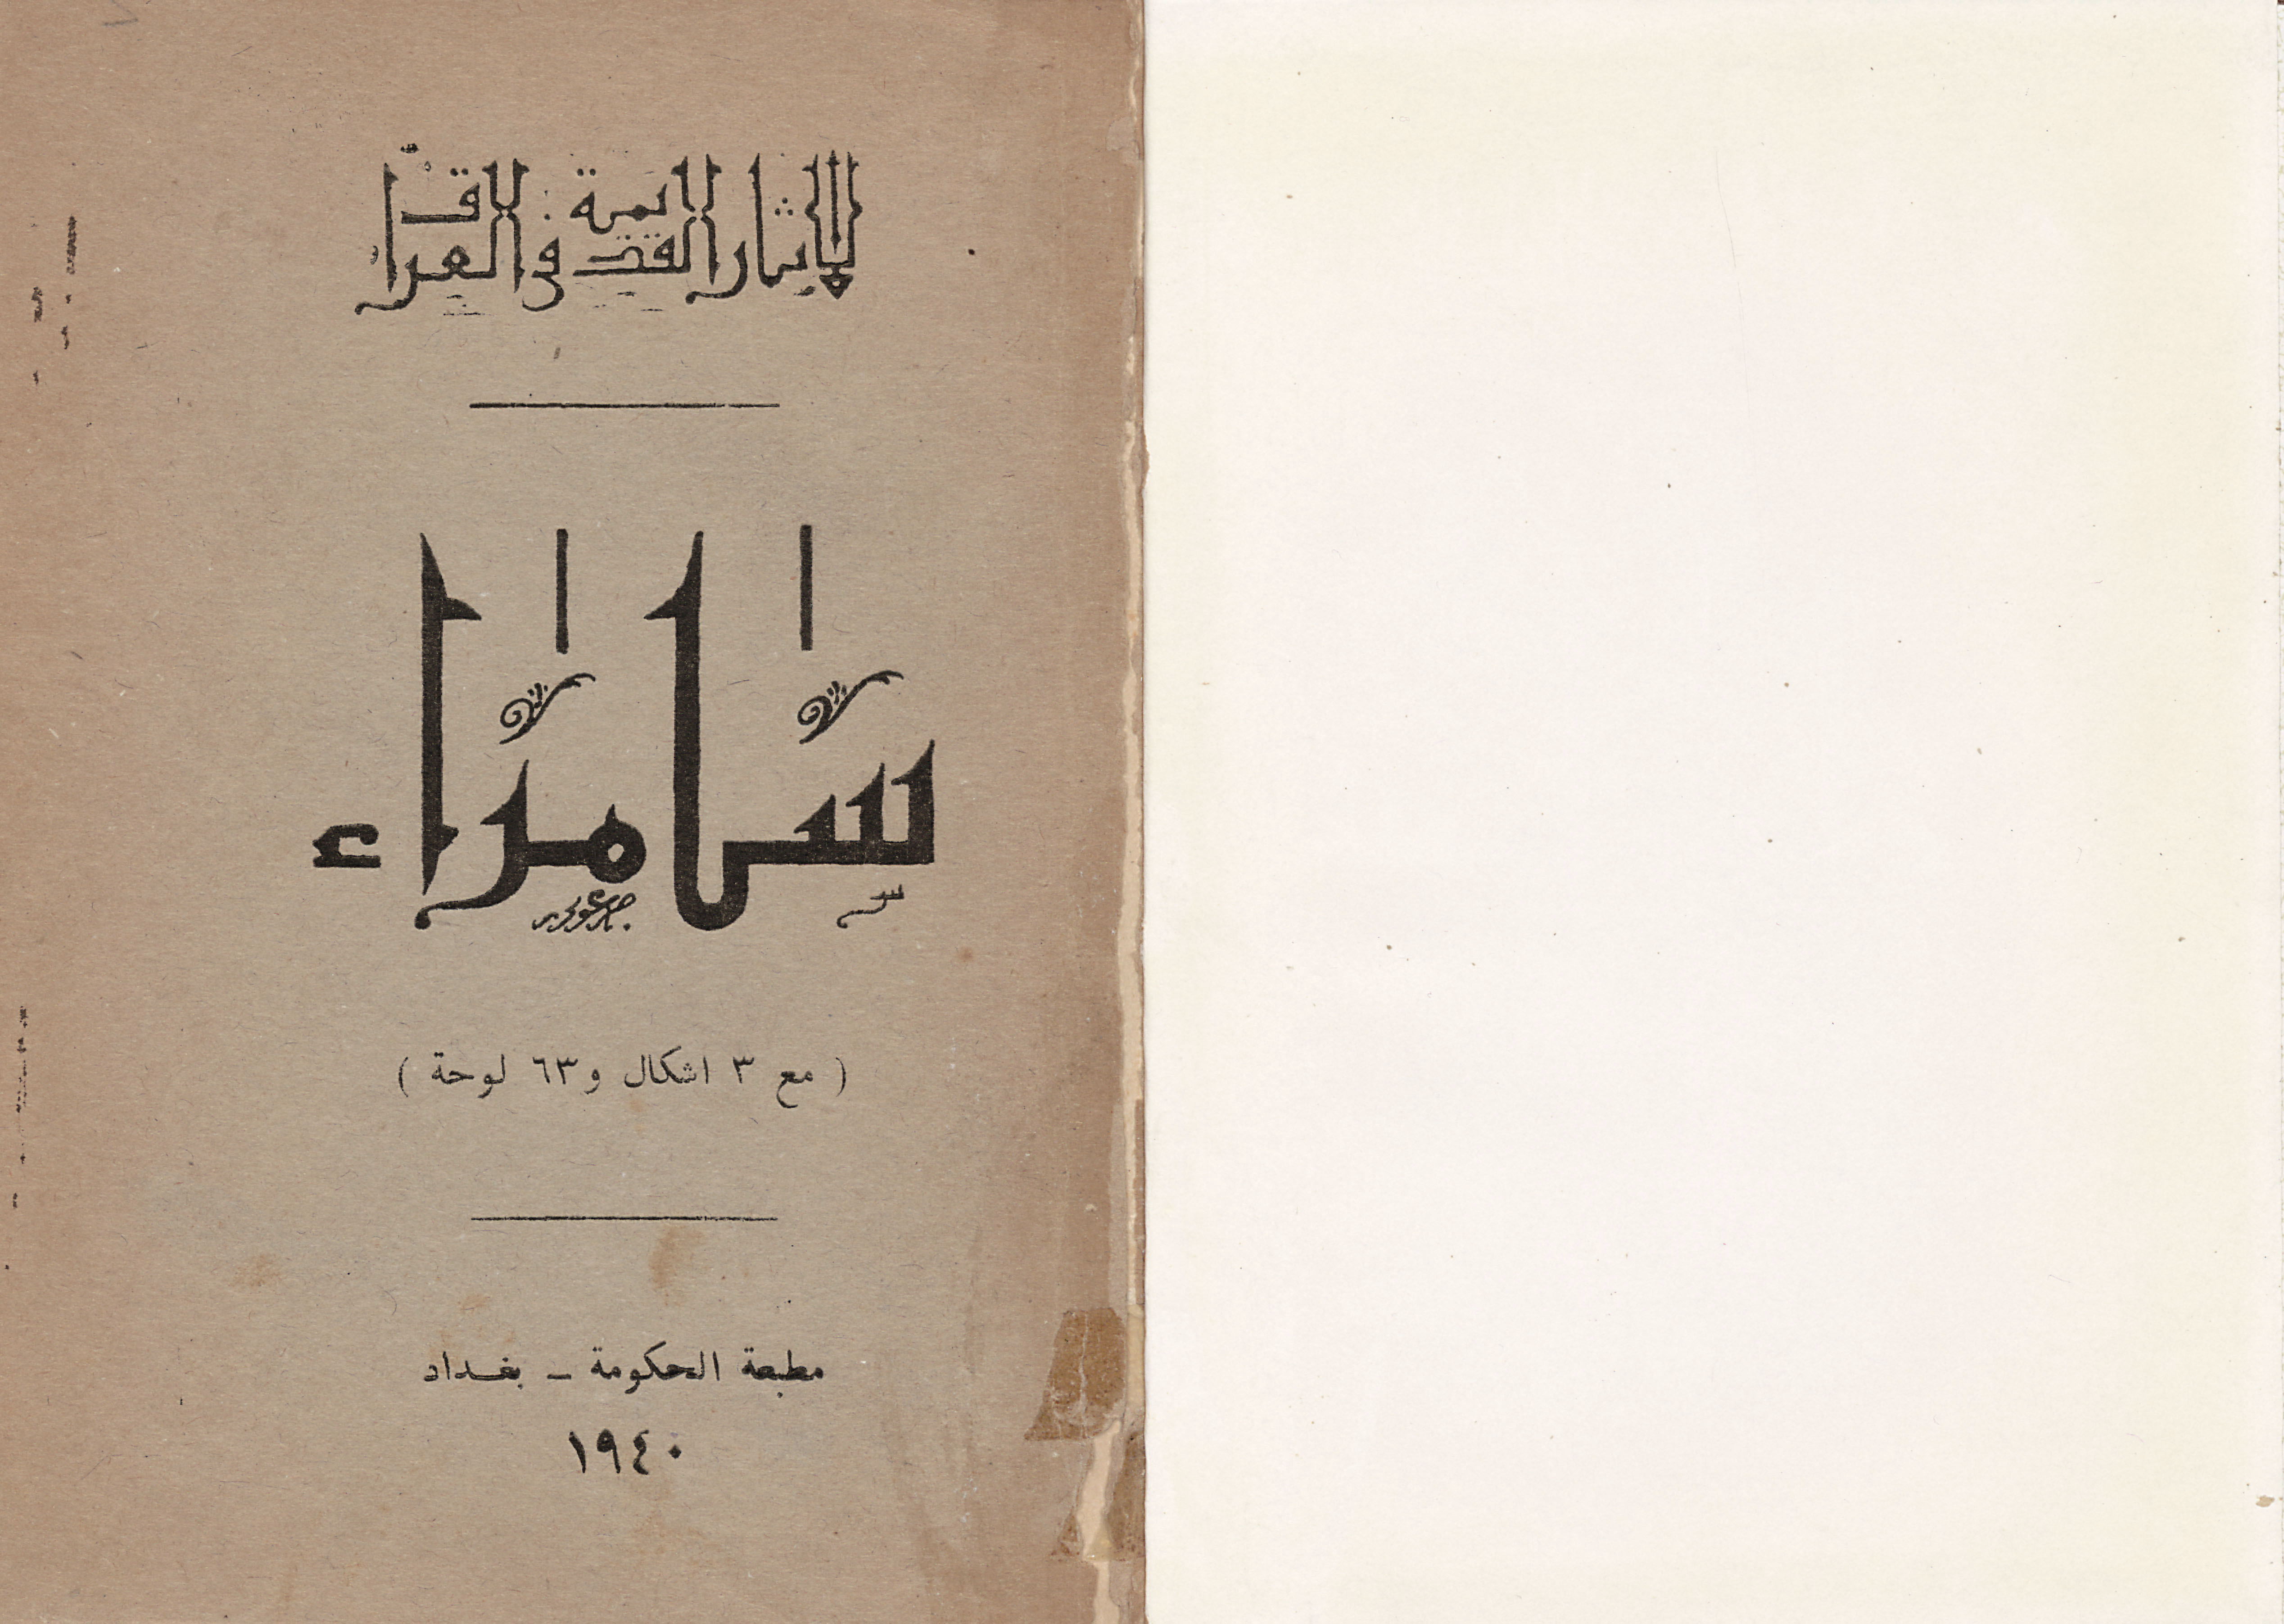 الآثار القديمة في العراق
سامراء
( مع ٣ اشكال و٦٣ لوحة )
مطبعة الحكومة ـ بغـداد
١٩٤٠